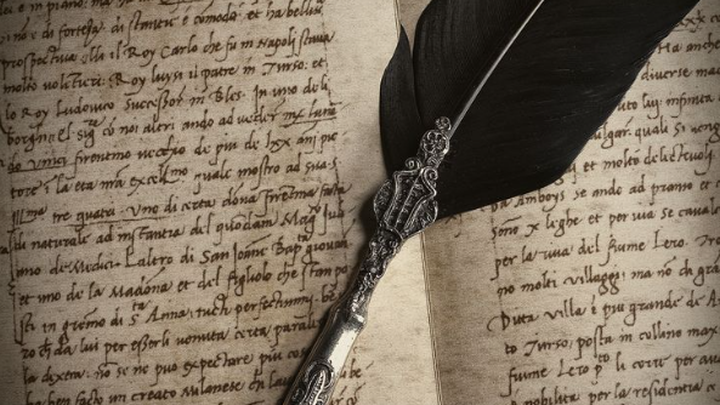 lei e in piano: ma ha
di forteza. di stantie è comoda. et ha bellis
prospectiva. Ili il Roy Carlo che fu in Napoli
molto volétieri: Roy luysi il patre in Turso: et
lo Roy Ludovico successor in Bles. In uno deli
borghi el Sig.re cō noi altri ando ad veder
firentino vecchio de piu de lxx anni
tore i la eta nra excell.mo quale mostro ad sua s.
Ill.ma tre quatri. Uno di certa dona firentina facta
di naturale ad instantia del quondam Mag.co Jul
de Medici. L'altro di San Joāne Bap.ta giovane
et uno de la Madona et del figliolo che stan po
sti in gremo di s.ta Anna. tucti perfectissimi. be
da lui per esserli venuta certa paralisi
la dextera. no se ne puo expectare piu cosa
ha ben facto un creato Milanese chi
Ma anche
diverse ma
infinita
quali si
et molto delectevoli
Da Amboys se ando ad pranso et
sono x leghe et per via se cavalc
per la riva del fiume Lero.
no molti villaggi: ma nō di gra
Dicta villa è piu grande de
to Turso: posta in collina
fiume Lero li corre per
nobilita per la residentia